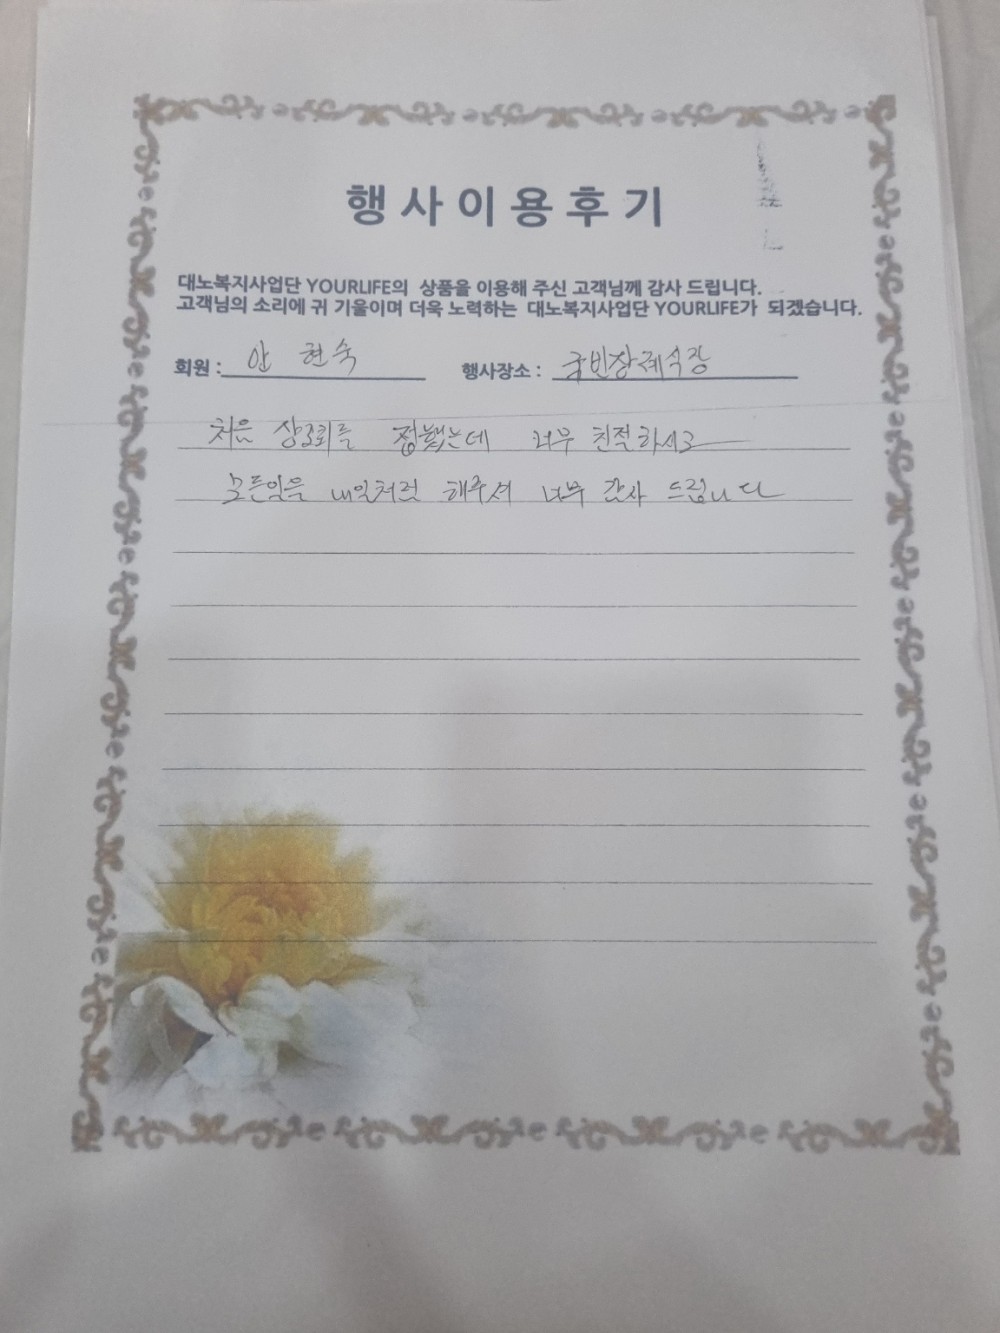 행사이용후기
대노복지사업단 YOURLIFE의 상품을 이용해 주신 고객님께 감사 드립니다.
고객님의 소리에 귀 기울이며 더욱 노력하는 대노복지사업단 YOURLIFE가 되겠습니다.
회원 : 안 현숙 행사장소 : 국빈장례식장
처음 상조회를 접했는데 너무 친절하시고
모든일을 내일처럼 해주셔 너무 감사 드립니다